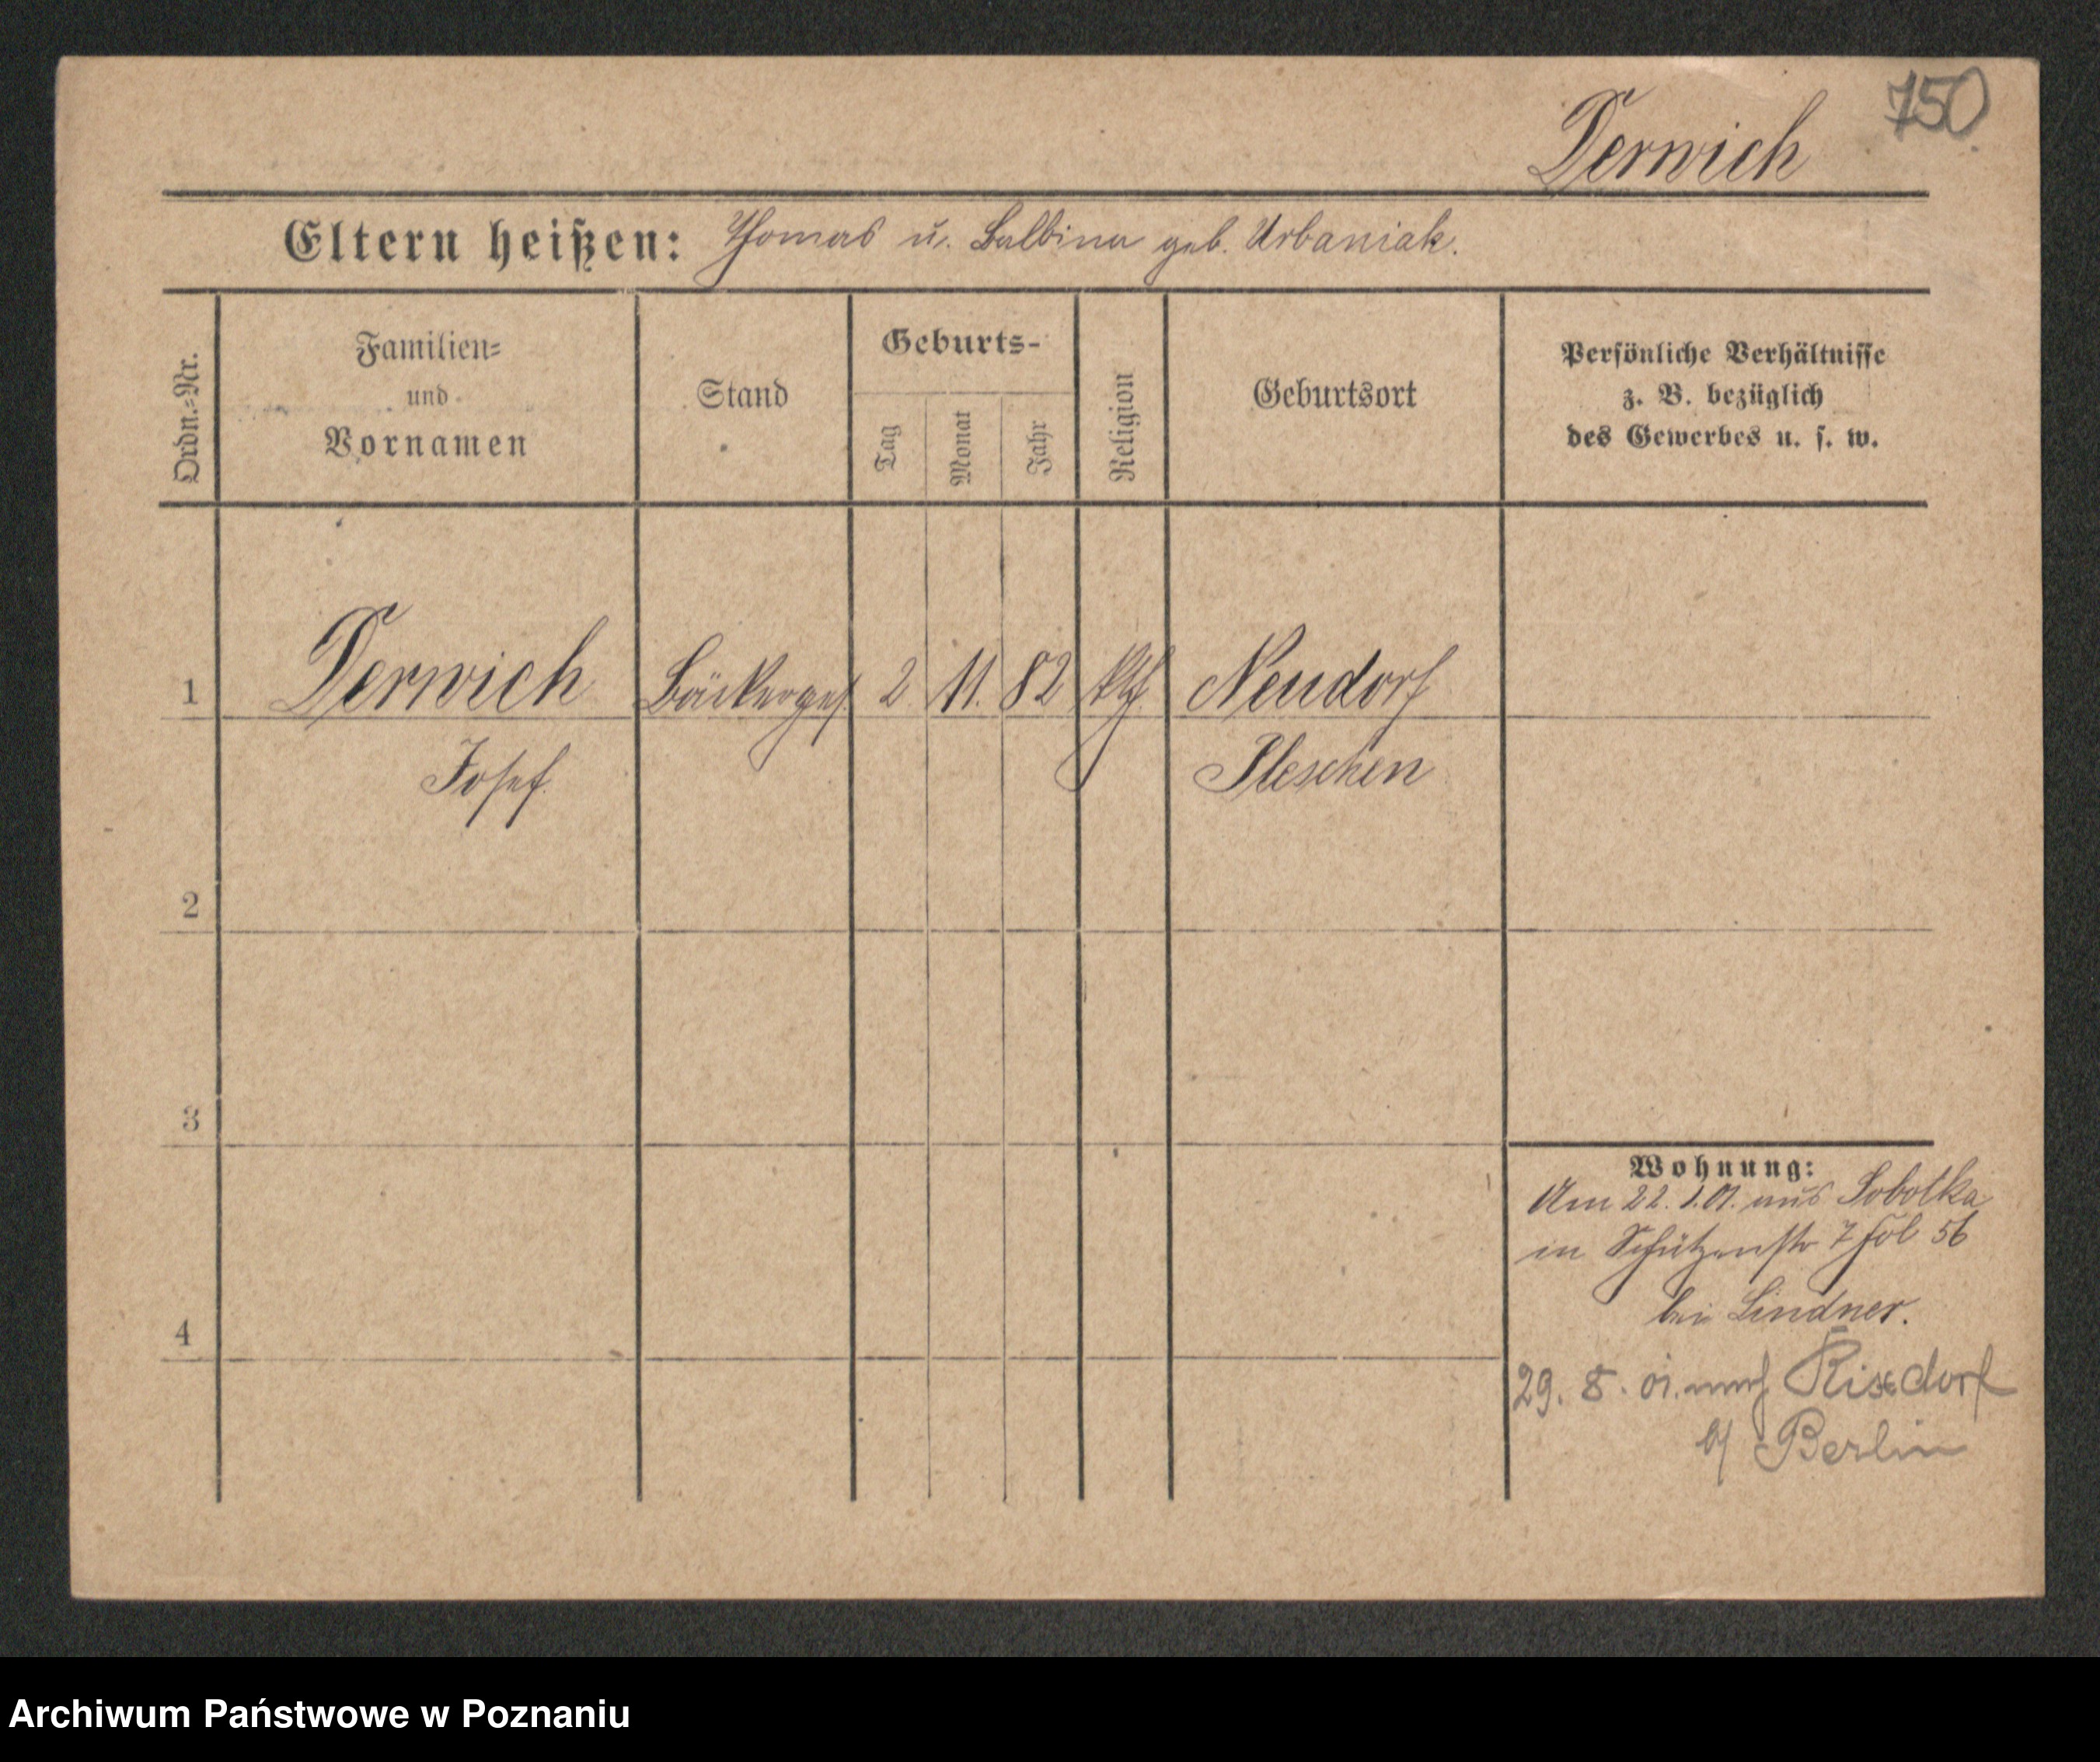 750
Derwich
Eltern heißen: Thomas u. Balbina geb. Urbaniak.
Ordn.-Nr.
Familien-
und
Vornamen
Stand
Geburts-
Tag
Monat
Jahr
Religion
Geburtsort
Persönliche Verhältnisse
z. B. bezüglich
des Gewerbes u. s. w.
1 Derwich Bäckerges. 2. 11. 82 kth. Neudorf
Josef. Pleschen
2
3
4
Wohnung:
Am 22. 1. 01. aus Sobotka
in Schützenstr 7 fol 56
bei Lindner.
29. 8. 01. nach Rixdorf
b/ Berlin
Archiwum Państwowe w Poznaniu